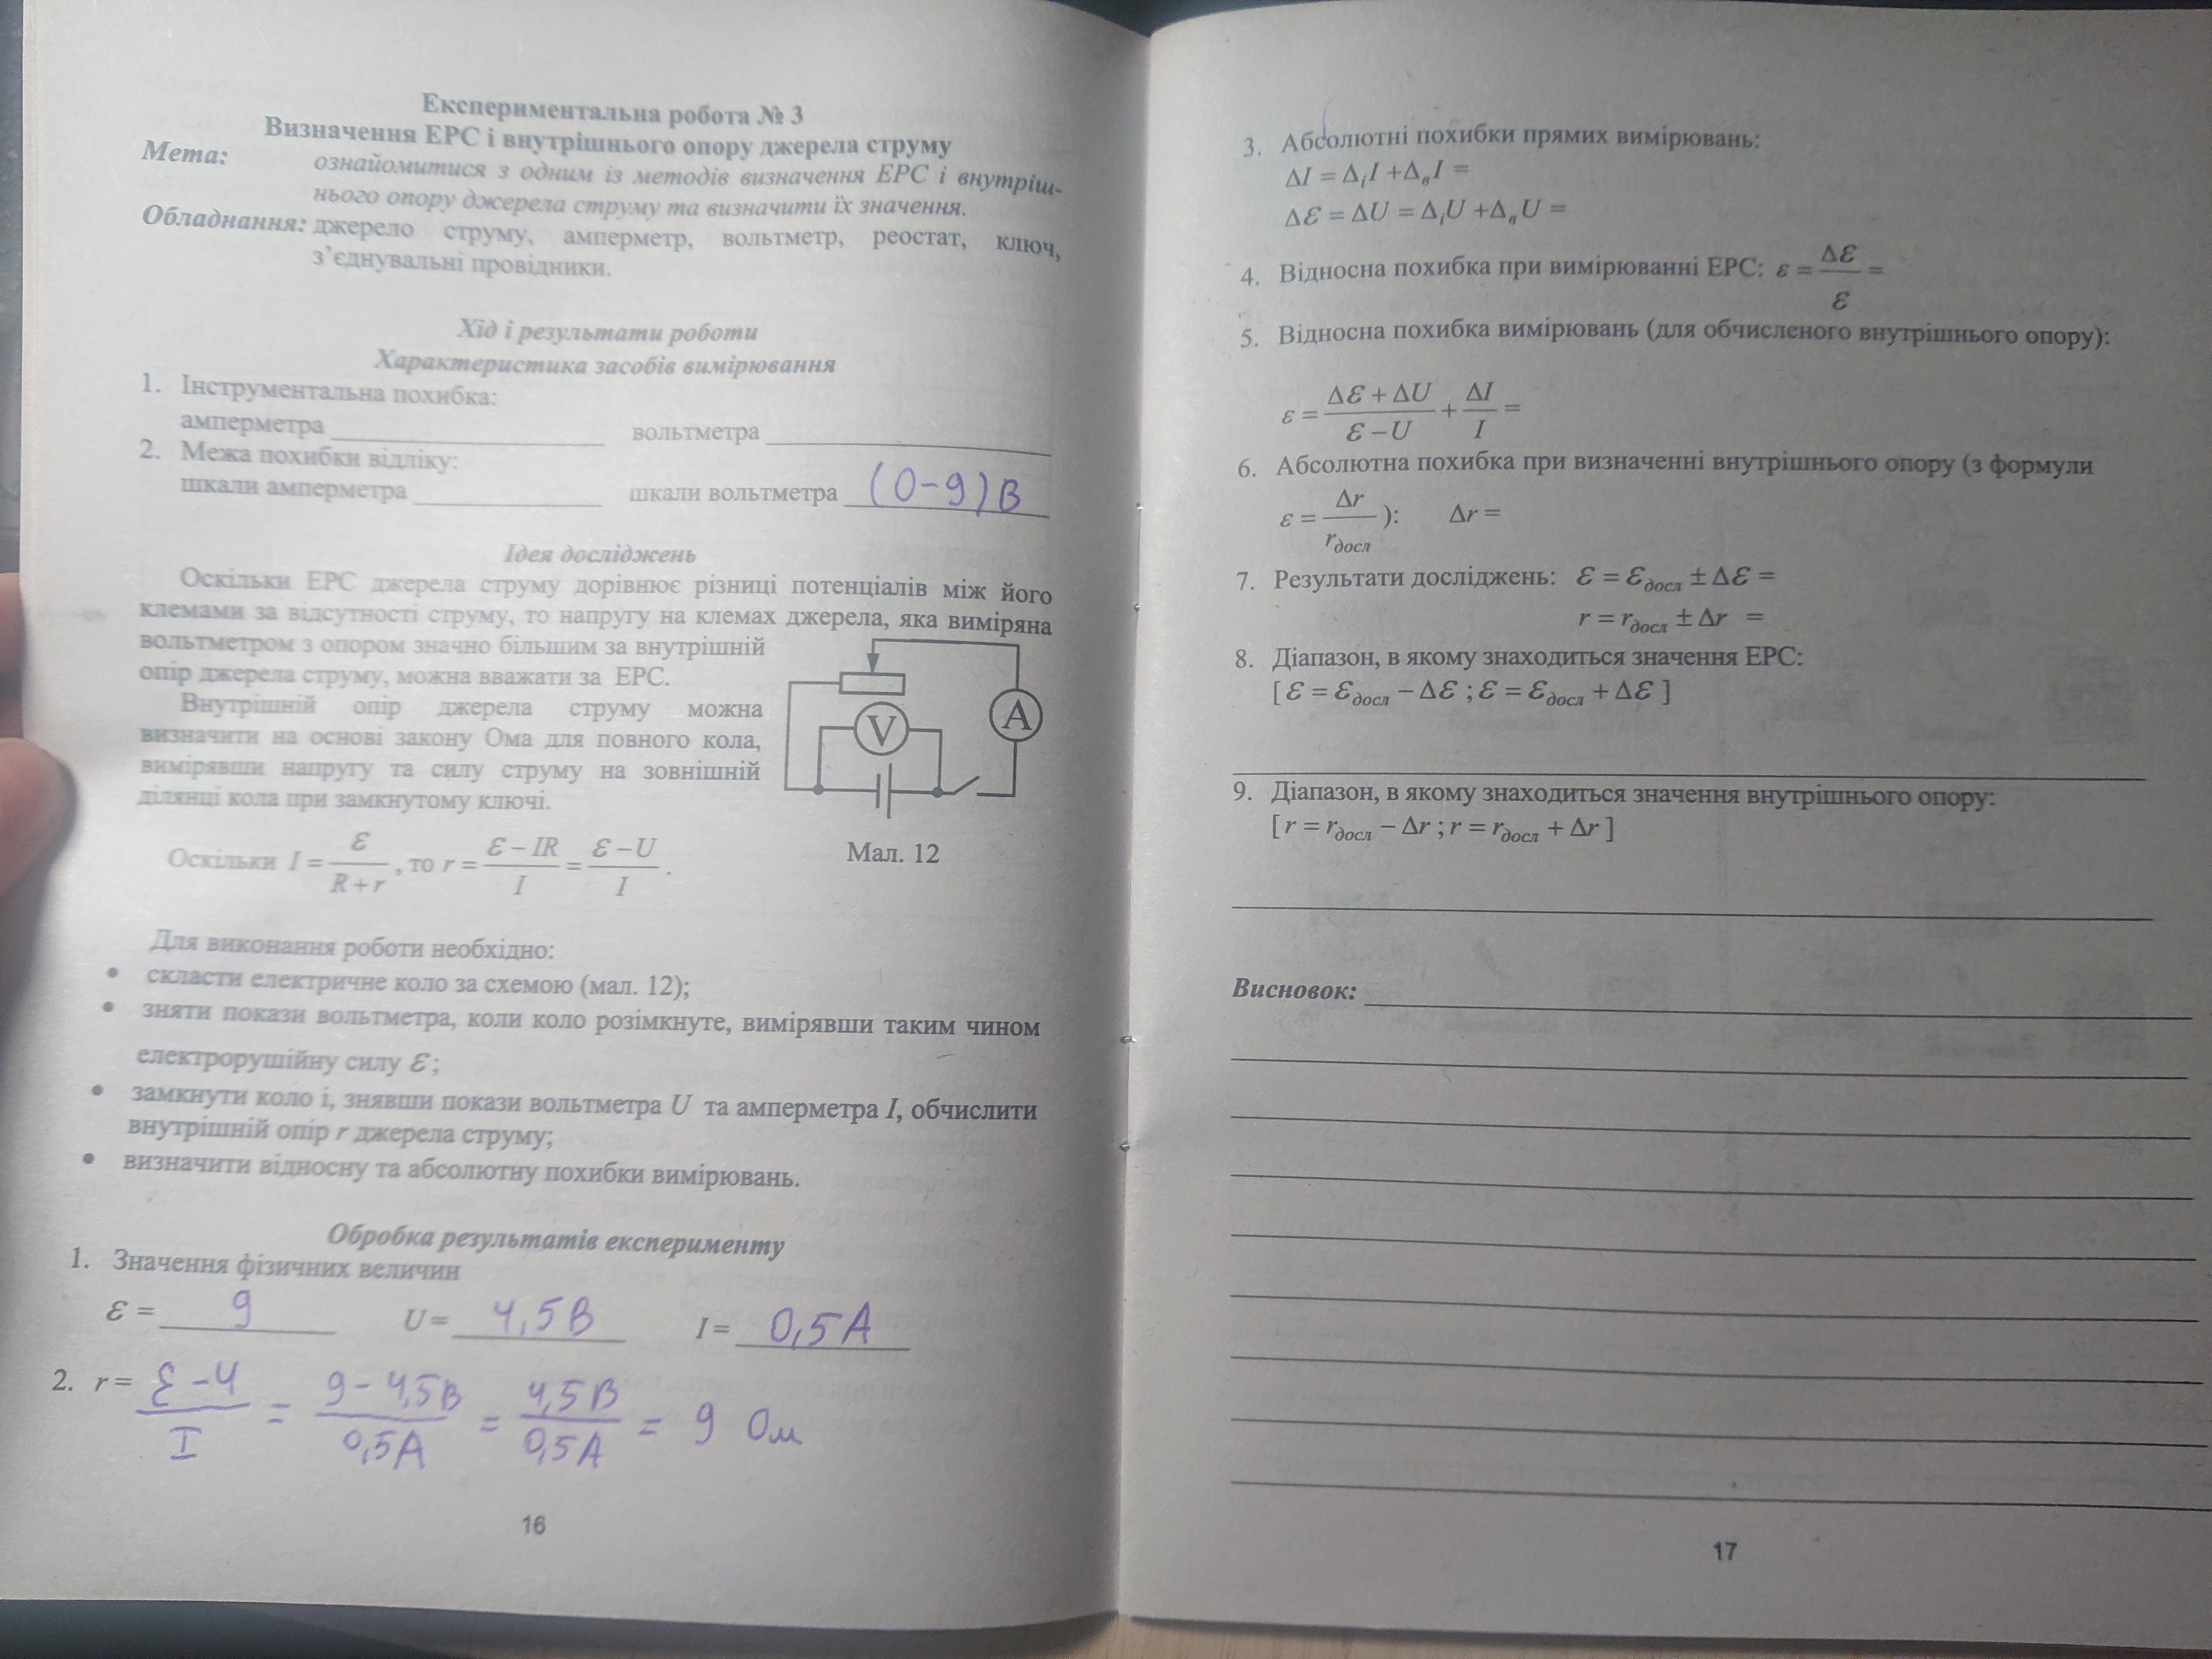 Експериментальна робота № 3
Визначення ЕРС і внутрішнього опору джерела струму
Мета: ознайомитися з одним із методів визначення ЕРС і внутріш-
нього опору джерела струму та визначити їх значення.
Обладнання: джерело струму, амперметр, вольтметр, реостат, ключ,
з’єднувальні провідники.
Хід і результати роботи
Характеристика засобів вимірювання
1. Інструментальна похибка:
амперметра ____ вольтметра ____
2. Межа похибки відліку:
шкали амперметра ____ шкали вольтметра (0-9)В
Ідея досліджень
Оскільки ЕРС джерела струму дорівнює різниці потенціалів між його
клемами за відсутності струму, то напругу на клемах джерела, яка виміряна
вольтметром з опором значно більшим за внутрішній
опір джерела струму, можна вважати за ЕРС.
Внутрішній опір джерела струму можна
визначити на основі закону Ома для повного кола,
вимірявши напругу та силу струму на зовнішній
ділянці кола при замкнутому ключі.
V
A
Мал. 12
Оскільки I = ℰ/(R + r), то r = (ℰ − IR)/I = (ℰ − U)/I.
Для виконання роботи необхідно:
• скласти електричне коло за схемою (мал. 12);
• зняти покази вольтметра, коли коло розімкнуте, вимірявши таким чином
електрорушійну силу ℰ;
• замкнути коло і, знявши покази вольтметра U та амперметра I, обчислити
внутрішній опір r джерела струму;
• визначити відносну та абсолютну похибки вимірювань.
Обробка результатів експерименту
1. Значення фізичних величин
ℰ = 9 U = 4,5В I = 0,5А
2. r = (ℰ - U)/I = (9 - 4,5В)/0,5А = 4,5В/0,5А = 9 Ом
16
3. Абсолютні похибки прямих вимірювань:
ΔI = ΔᵢI + ΔвI =
Δℰ = ΔU = ΔᵢU + ΔвU =
4. Відносна похибка при вимірюванні ЕРС: ε = Δℰ/ℰ =
5. Відносна похибка вимірювань (для обчисленого внутрішнього опору):
ε = (Δℰ + ΔU)/(ℰ − U) + ΔI/I =
6. Абсолютна похибка при визначенні внутрішнього опору (з формули
ε = Δr/rдосл): Δr =
7. Результати досліджень: ℰ = ℰдосл ± Δℰ =
r = rдосл ± Δr =
8. Діапазон, в якому знаходиться значення ЕРС:
[ ℰ = ℰдосл − Δℰ ; ℰ = ℰдосл + Δℰ ]
9. Діапазон, в якому знаходиться значення внутрішнього опору:
[ r = rдосл − Δr ; r = rдосл + Δr ]
Висновок:
17